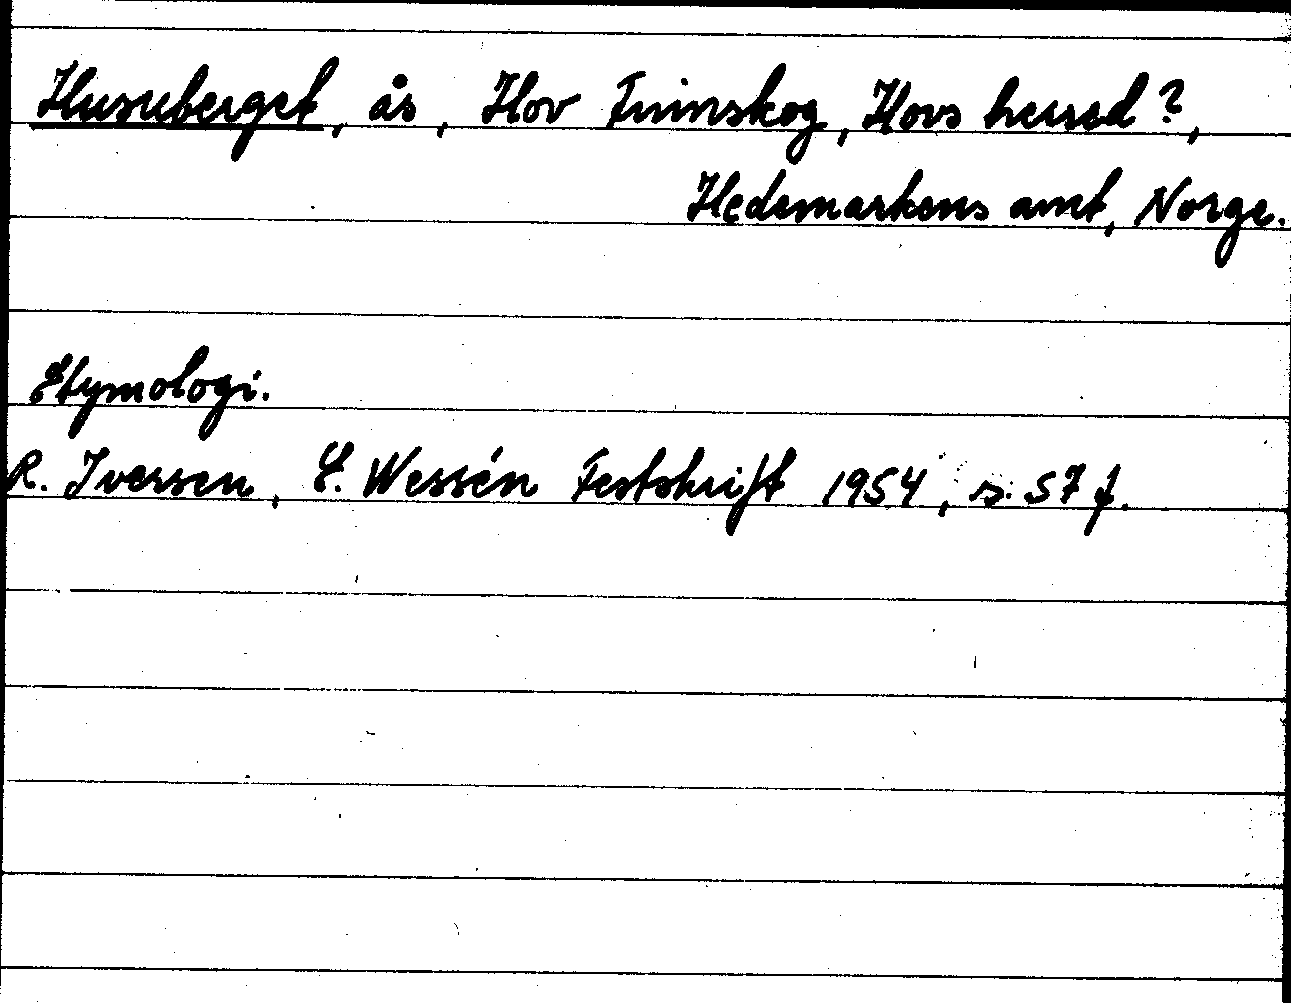 Husuberget, ås, Hov Finnskog, Hovs herred?,
Hedemarkens amt, Norge.
Etymologi.
R. Iversen, E. Wessén Festskrift 1954, s. 57 f.